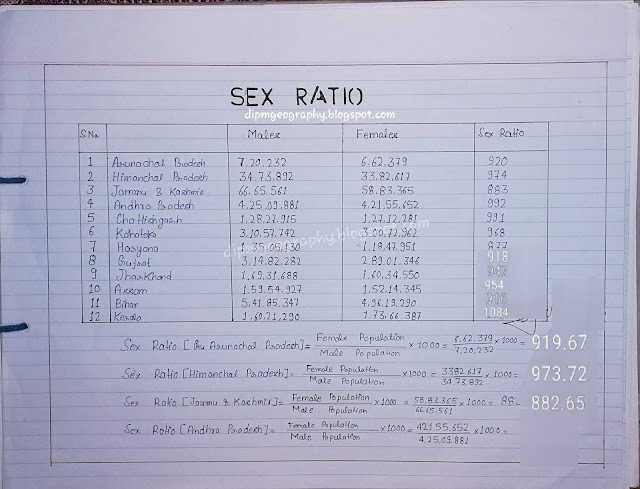 SEX RATIO
dipmgeography.blogspot.com
S.No Males Females Sex Ratio
1 Arunachal Pradesh 7,20,232 6,62,379 920
2 Himanchal Pradesh 34,73,892 33,82,617 974
3 Jammu & Kashmir 66,65,561 58,83,365 883
4 Andhra Pradesh 4,25,09,881 4,21,55,652 992
5 Chattishgarh 1,28,27,915 1,27,12,281 991
6 3,10,57,742 968
7 Haryana 1,18,47,951 877
dipmgeography.blogspot.com
8 Gujrat 3,14,82,282 2,89,01,346 918
9 Jharkhand 1,69,31,688 1,60,34,550
10 Assam 1,59,54,927 1,52,14,345 954
11 Bihar 5,41,85,347 4,96,19,290
12 Kerala 1,60,21,290 1,73,66,387 1084
Sex Ratio [ Arunachal Pradesh] = Female Population / Male Population × 1000 = 6,62,379 / 7,20,232 × 1000 = 919.67
Sex Ratio [Himanchal Pradesh] = Female Population / Male Population × 1000 = 3382617 / 34,73,892 × 1000 = 973.72
Sex Ratio [Jammu & Kashmir] = Female Population / Male Population × 1000 = 58,83,365 / 66,65,561 × 1000 = 882.65
Sex Ratio [Andhra Pradesh] = Female Population / Male Population × 1000 = 421,55,652 / 4,25,09,881 × 1000 =